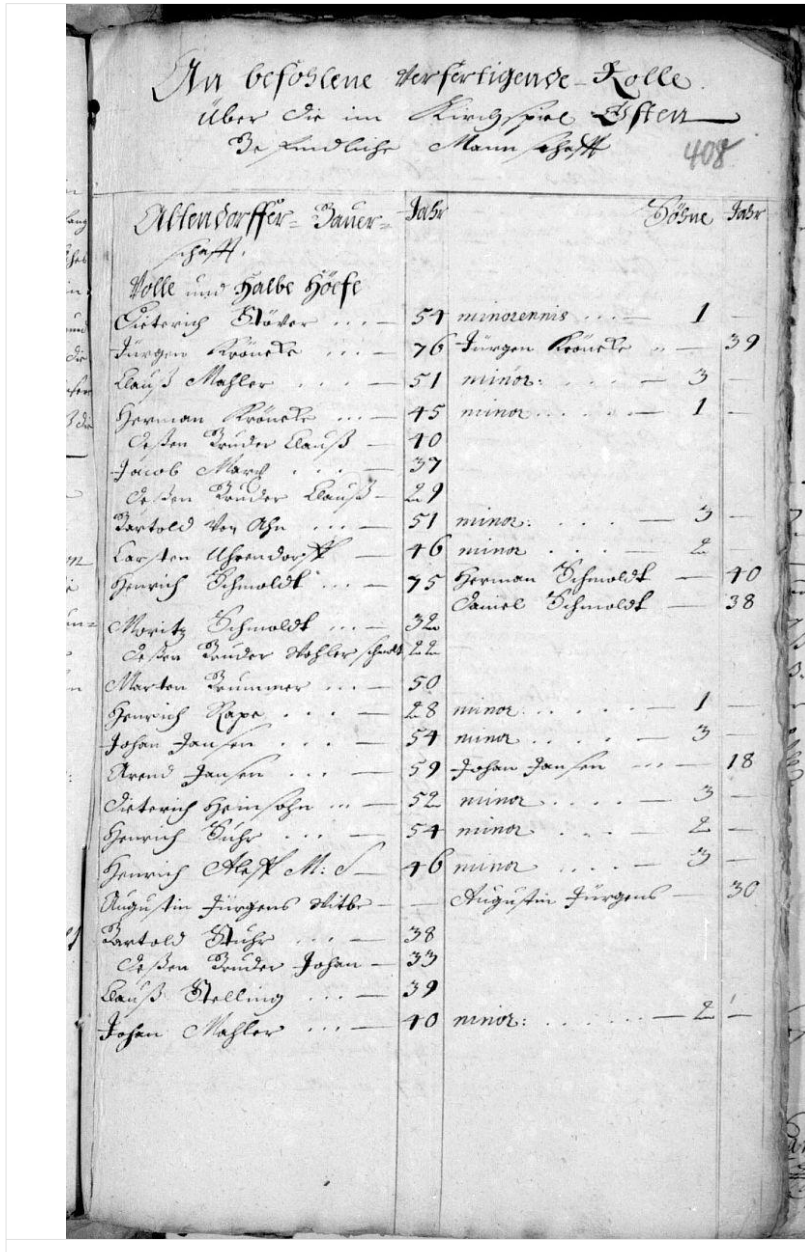 An befohlene Verfertigende Rolle
über die im Kirchspiel Osten
Befindliche Mannschafft
408
Altendorffer-Bauer- Jahr Söhne Jahr
schafft.
Volle und Halbe Höefe
Dieterich Stöver ... — 54 minorennis ... — 1 —
Jürgen Kröncke ... — 76 Jürgen Kröncke — 39
Clauß Mahler ... — 51 minor: ... — 3 —
Herman Kröncke ... — 45 minor ... — 1 —
deßen Bruder Clauß — 40
Jacob — 37
deßen Bruder Clauß — 29
Bartold von Ahn ... — 51 minor: ... — 3 —
Carsten Uhrendorff — 46 minor ... — 2 —
Henrich Schmoldt ... — 75 Herman Schmoldt — 40
Daniel Schmoldt — 38
Moritz Schmoldt ... — 32
deßen Bruder 22
Marten Brummer ... — 50
Henrich Rape ... — 28 minor ... — 1 —
Johan Jansen ... — 54 minor ... — 3 —
Arend Jansen ... — 59 Johan Jansen ... — 18
Dieterich Heinsohn ... — 52 minor ... — 3 —
Henrich Suhr ... — 54 minor ... — 2 —
Henrich M: S — 46 minor ... — 3 —
Augustin Jürgens Witbe — — Augustin Jürgens — 30
Bartold Stuhr ... — 38
deßen Bruder Johan — 33
Clauß Stelling ... — 39
Johan Mahler ... — 40 minor: ... — 2 —